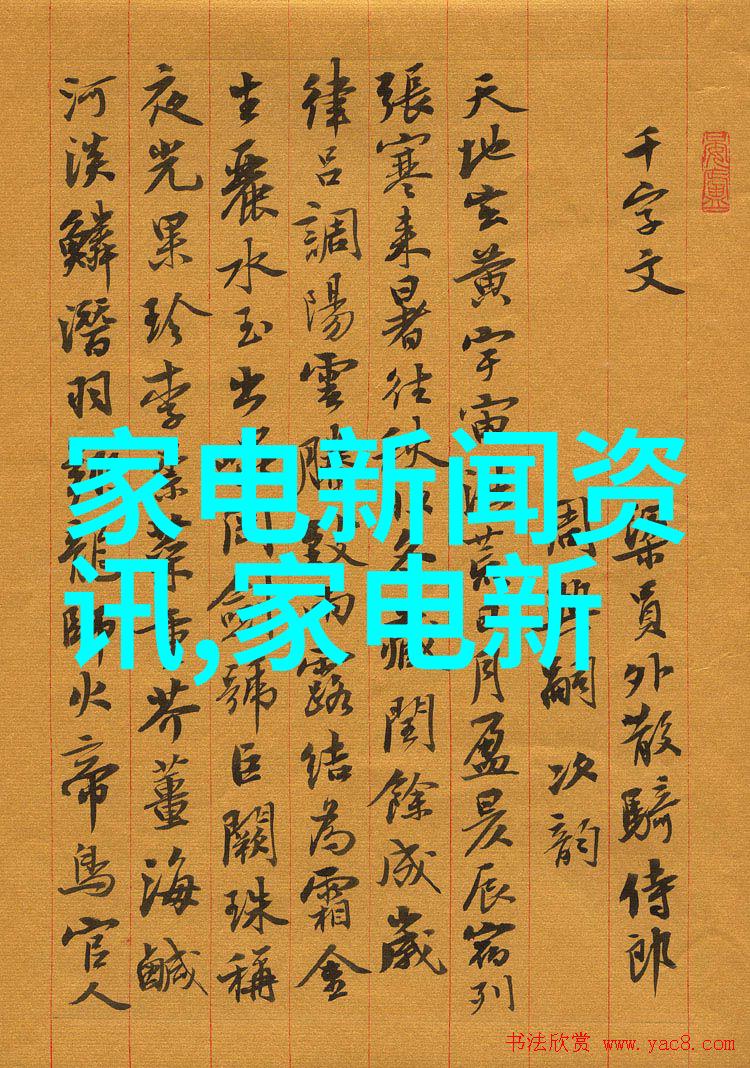 千字文 梁員外散騎侍郎
周興嗣次韵
天地玄黃宇宙洪荒日月盈昃辰宿列
張寒來暑往秋收冬藏閏餘成歲
律呂調陽雲騰致雨露結為霜金
生麗水玉出崑岡劍號巨闕珠稱
夜光果珍李柰菜重芥薑海鹹
河淡鱗潛羽翔龍師火帝鳥官人
家电新闻资
讯,家电新
书法欣赏 www.yac8.com